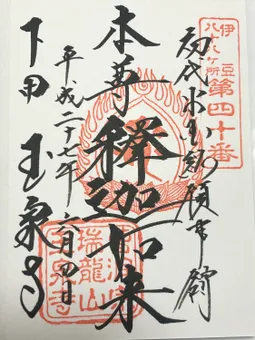 伊豆
八十八ヶ所
第四十番
初代米国総領事館
本尊 釋迦如来
平成二十七年六月四日
下田 玉泉寺
瑞龍山
玉泉寺